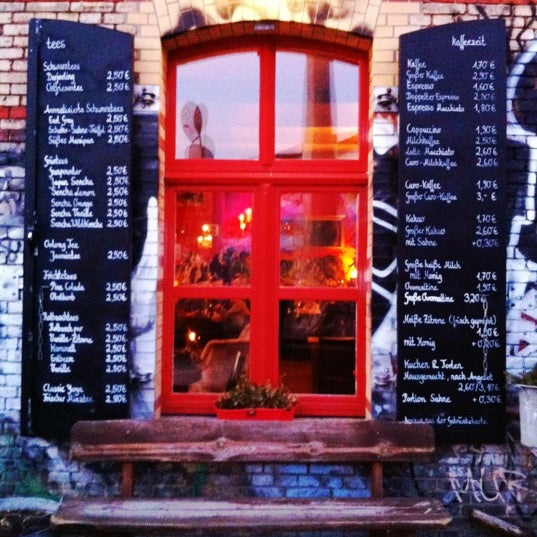 tees
Schwarztees
Darjeeling 2,50€
Ostfriesentee 2,50€
Aromatisierte Schwarztees
Earl Grey 2,50€
Schoko-Sahne-Trüffel 2,50€
Süßes Marzipan 2,50€
Grüntees
Gunpowder 2,50€
Japan Sencha 2,50€
Sencha Lemon 2,50€
Sencha Orange 2,50€
Sencha Vanille 2,50€
Sencha Wildkirsche 2,50€
Oolong Tee
Jasmintee 2,50€
Früchtetees
Pina Colada 2,50€
Obstkorb 2,50€
Rotbuschtees
Rotbusch pur 2,50€
Vanille-Zitrone 2,50€
Karamell 2,50€
Erdbeer 2,50€
Vanille 2,50€
Classic Yogi 2,50€
Frischer Minztee 2,80€
kaffeezeit
Kaffee 1,70€
Großer Kaffee 2,90€
Espresso 1,60€
Doppelter Espresso 2,50€
Espresso Macchiato 1,80€
Cappuccino 1,90€
Milchkaffee 2,50€
Latte Macchiato 2,60€
Caro-Milchkaffee 2,60€
Caro-Kaffee 1,90€
Großer Caro-Kaffee 3,-€
Kakao 1,70€
Großer Kakao 2,60€
mit Sahne +0,30€
Große heiße Milch
mit Honig 1,70€
Ovomaltine 1,90€
Große Ovomaltine 3,20€
Heiße Zitrone (frisch gepreßt)
mit Honig +0,20€
Kuchen & Torten
Hausgemacht, nach Angebot
Portion Sahne +0,30€
Auszug aus der Getränkekarte